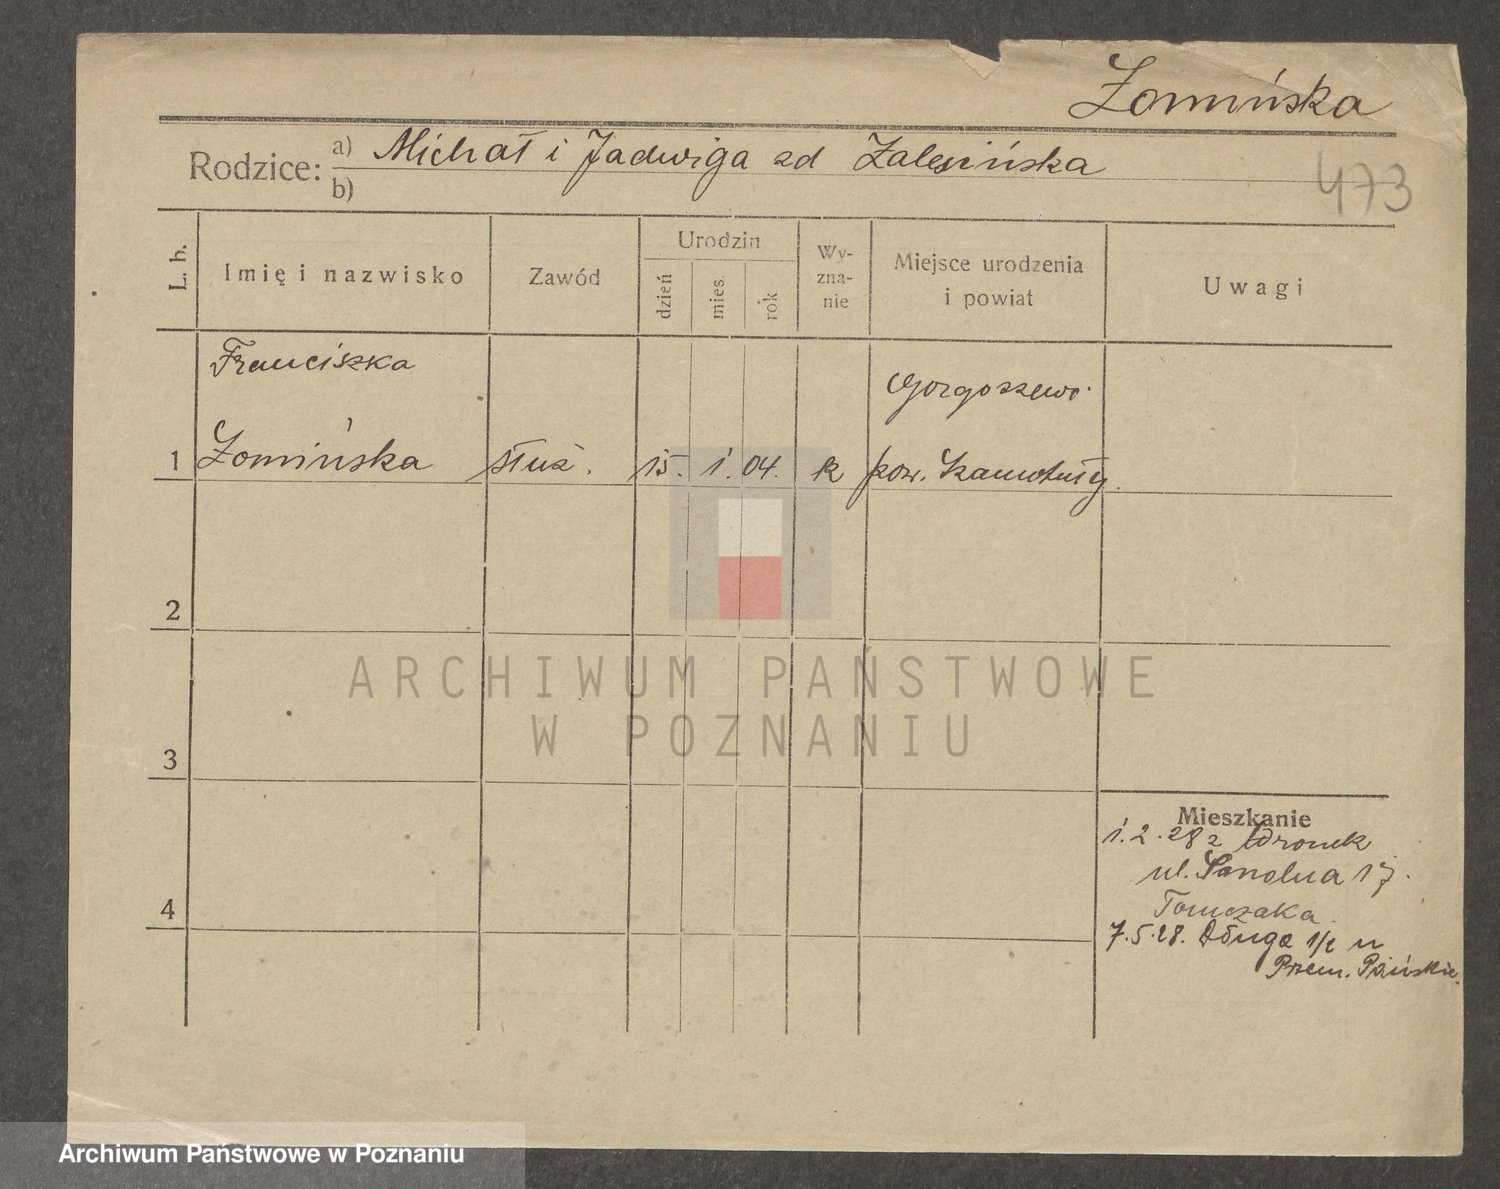 Żomińska
Rodzice: a) Michał i Jadwiga zd Zalesińska
b)
473
L. b.
Imię i nazwisko
Zawód
Urodzin
dzień
mies.
rok
Wy-
zna-
nie
Miejsce urodzenia
i powiat
Uwagi
Franciszka
Gorgoszewo
1 Żomińska służ. 15. 1. 04. k pow. Szamotuły
2
ARCHIWUM PAŃSTWOWE
W POZNANIU
3
Mieszkanie
1. 2. 28 z Wronek
ul. 17.
Tomczaka
4
7.5.28. Długa 1/2 u
Przem. Pańskie.
Archiwum Państwowe w Poznaniu